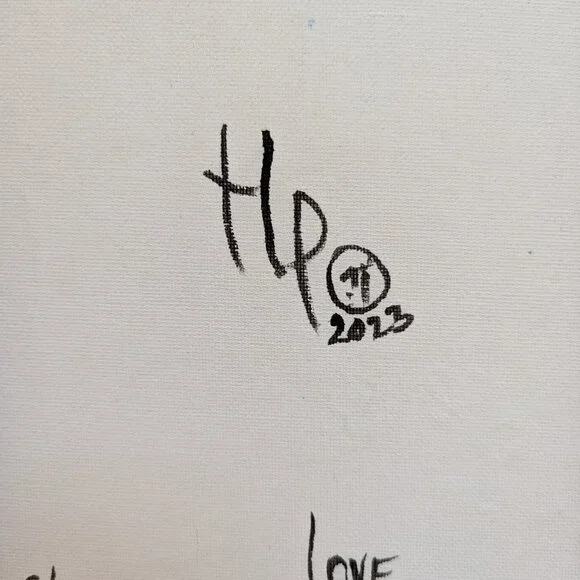 HP
2023
LOVE